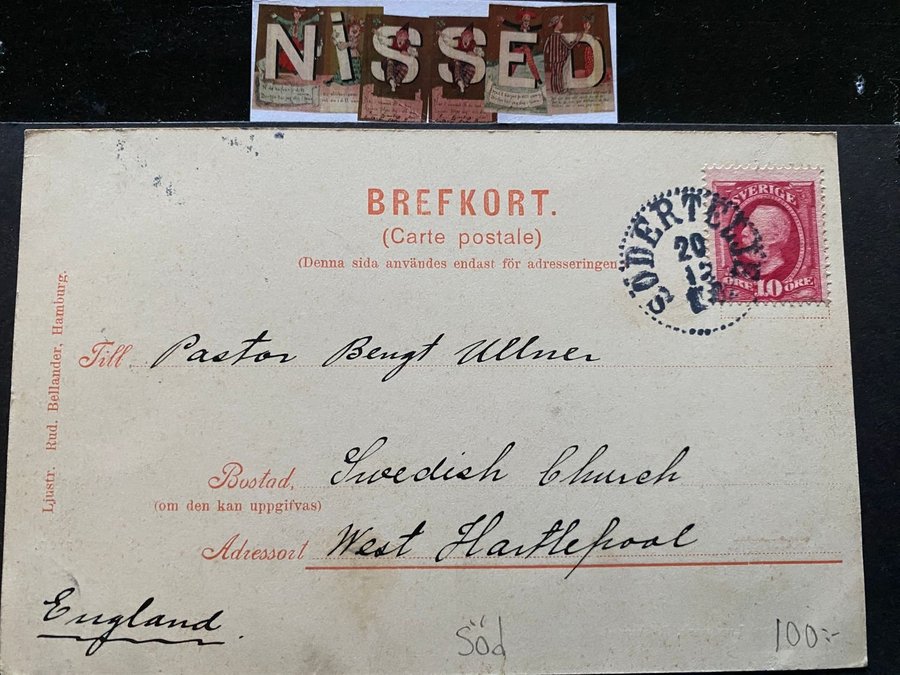 NiSSED
BREFKORT.
(Carte postale)
(Denna sida användes endast för adresseringen
SVERIGE
ÖRE 10 ÖRE
SÖDERTELJE
20
12
Till Pastor Bengt Ullner
Bostad, Swedish Church
(om den kan uppgifvas)
Adressort West Hartlepool
England
Söd
100:-
Ljustr. Rud. Bellander, Hamburg.